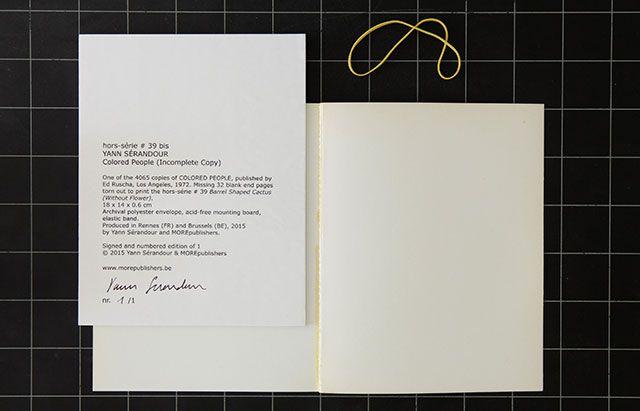 hors-série # 39 bis
YANN SÉRANDOUR
Colored People (Incomplete Copy)
One of the 4065 copies of COLORED PEOPLE, published by
Ed Ruscha, Los Angeles, 1972. Missing 32 blank end pages
torn out to print the hors-série # 39 Barrel Shaped Cactus
(Without Flower).
18 x 14 x 0.6 cm
Archival polyester envelope, acid-free mounting board,
elastic band.
Produced in Rennes (FR) and Brussels (BE), 2015
by Yann Sérandour and MOREpublishers.
Signed and numbered edition of 1
© 2015 Yann Sérandour & MOREpublishers
www.morepublishers.be
Yann Serandour
nr. 1 /1